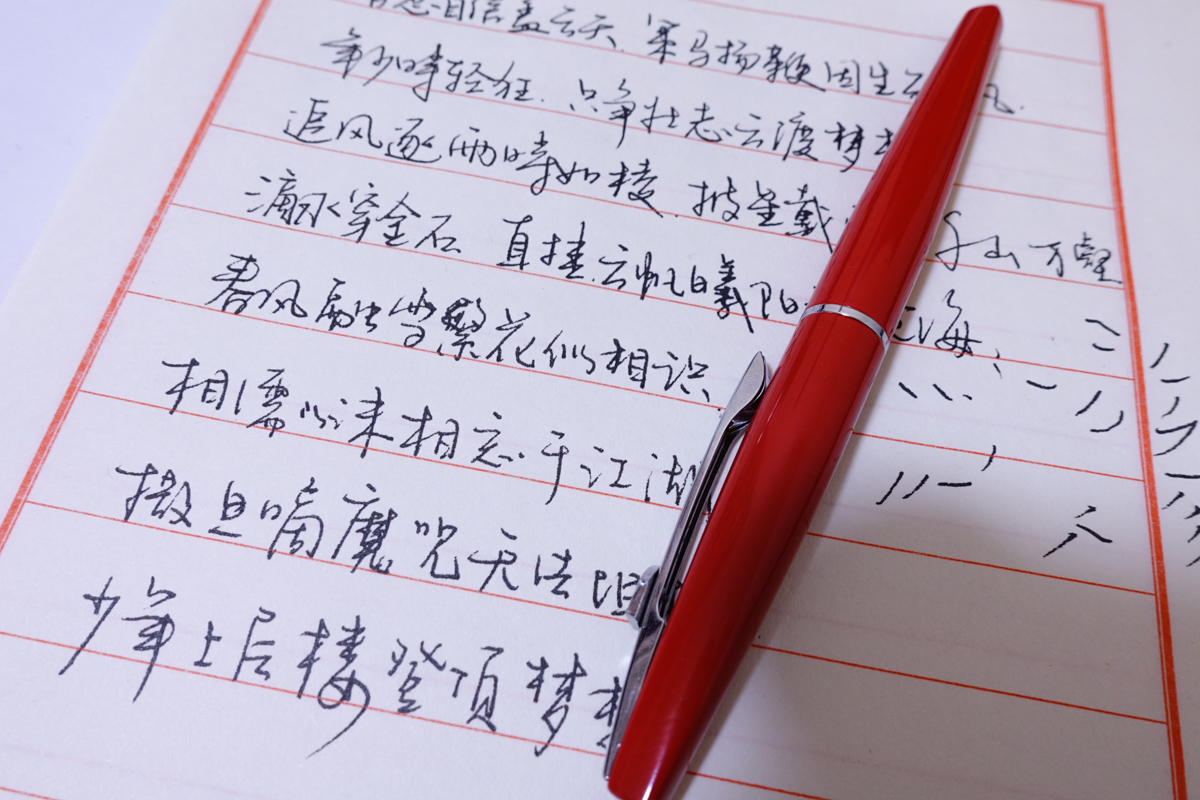 自信盖云天.策马扬鞭因生
年少时轻狂.只争壮志云渡梦
追风逐雨时如梭.披星戴
滴水穿金石 直挂云帆曦阳 千山万壑
春风融雪繁花似相识 海、
相濡以沫相忘于江湖
撒旦嘀魔咒无法阻
少年上层楼登顶梦